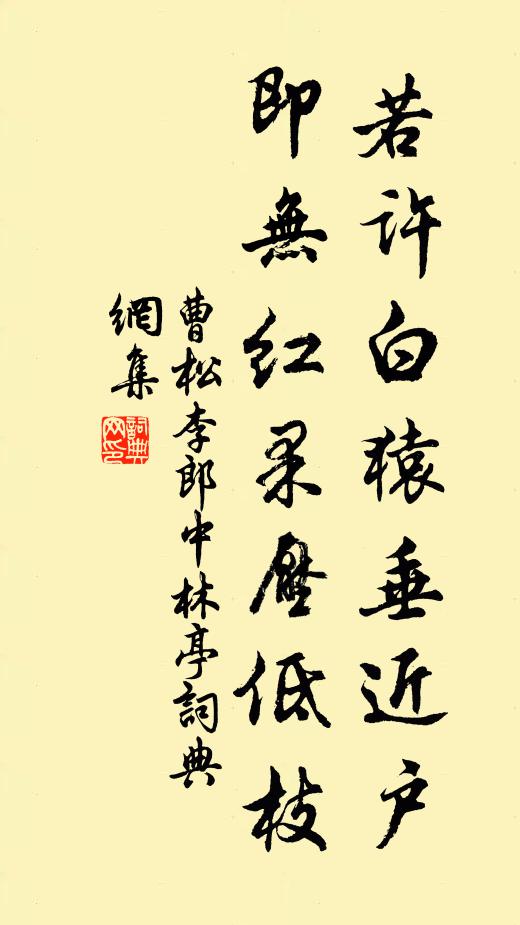 若許白猿垂近户
即無紅果壓低枝
曹松李郎中林亭詞典
網集
詞典
网印